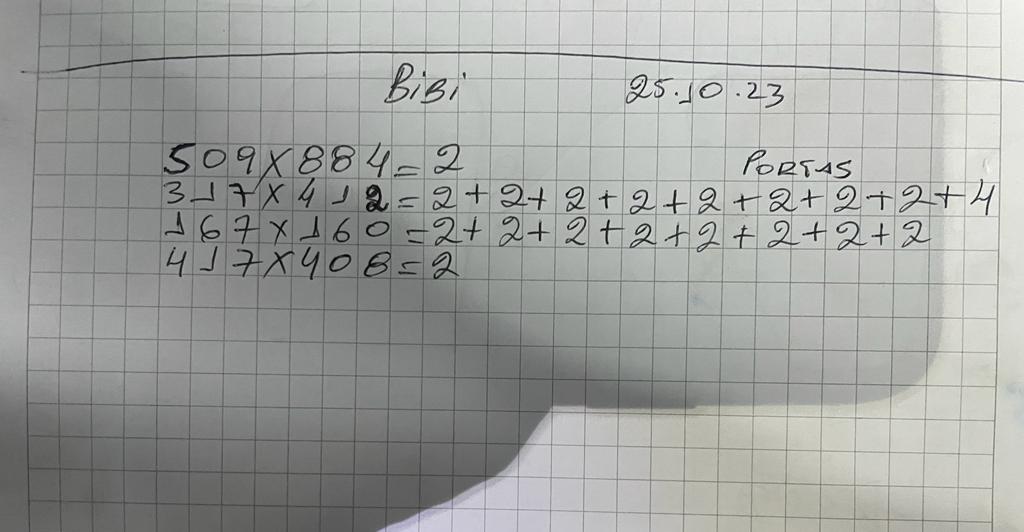 BiBi 25.10.23
509X884=2 PORTAS
317X412=2+2+2+2+2+2+2+2+4
167X160=2+2+2+2+2+2+2+2
417X408=2